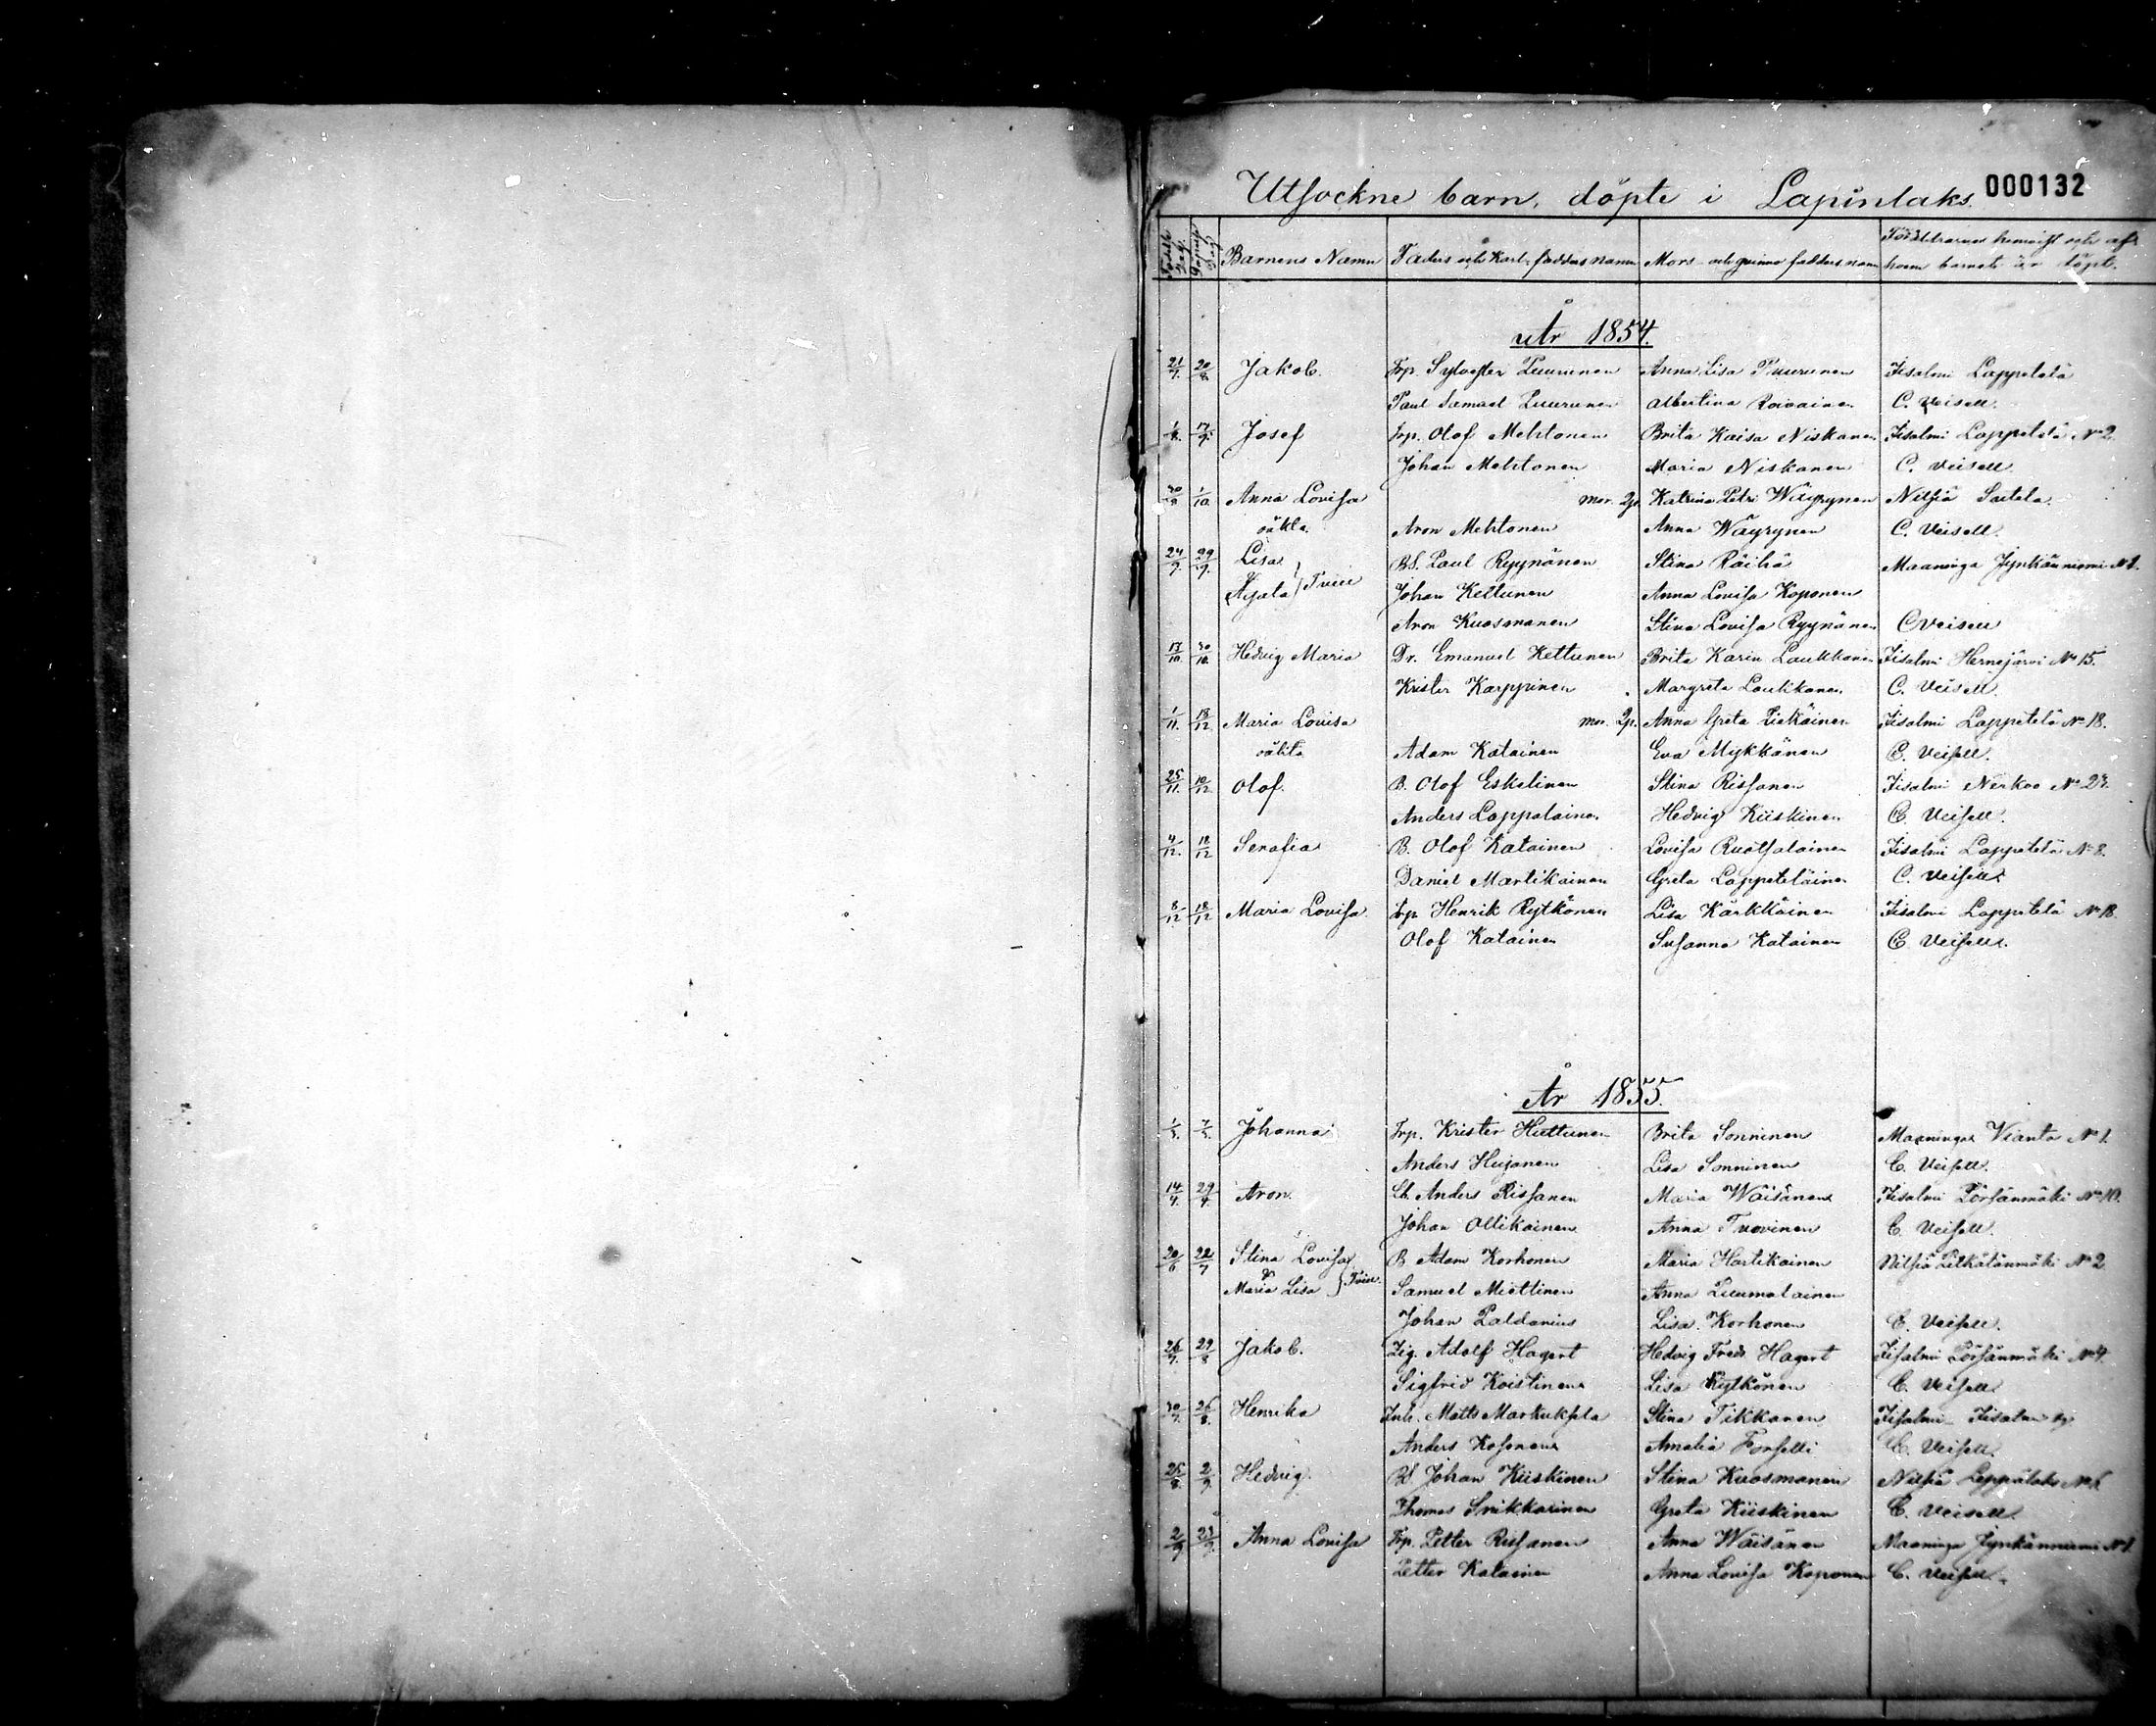 Utsockne barn, döpte i Lapinlaks.
000132
Födelse Dag. Döpelse Dag Barnens Namn Faders och Karl-fadders namn Mors- och qvinno fadders namn Föräldrarnes hemvist och af hvem barnet är döpt.
År 1854.
21/7. 20/8. Jakob. Trp. Sylvester Puurunen Anna Lisa Puurunen Iisalmi Lappetelä
Paul Samuel Puurunen Albertina Roivainen C. Veisell.
1/8. 17/9. Josef Trp. Olof Mehtonen Brita Kaisa Niskanen Iisalmi Lappetelä No 2.
Johan Mehtonen Maria Niskanen C. Veisell.
30/9 1/10. Anna Lovisa mor. Katrina Petri Wäyrynen Nilsiä
oäkta. Aron Mehtonen Anna Wäyrynen C. Veisell.
24/9. 29/9. Lisa BS. Paul Ryynänen Stina Räihä Maaninga Jynkänniemi No 1.
& Agata } Tvill Johan Kettunen Anna Lovisa Koponen
Aron Kuosmanen Stina Lovisa Ryynänen C Veisell
17/10. 30/10. Hedvig Maria Dr. Emanuel Kettunen Brita Karin Laukkanen Iisalmi Hernejärvi No 15.
Krister Karppinen Margreta Laukkanen C. Veisell.
1/11. 18/12 Maria Lovisa mor. Anna Greta Iisalmi Lappetelä No 18.
oäkta Adam Katainen Eva Mykkänen C. Veisell.
25/11. 10/12 Olof. B. Olof Eskelinen Stina Rissanen Iisalmi Nerkoo No 27.
Anders Lappalainen Hedvig Kiiskinen C. Veisell.
4/12. 18/12 Serafia B. Olof Katainen Lovisa Ruotsalainen Iisalmi Lappetelä No 8.
Daniel Martikainen Greta Lappeteläinen C. Veisell.
8/12 18/12 Maria Lovisa Trp Henrik Rytkönen Lisa Kärkkäinen Iisalmi Lappetelä No 18.
Olof Katainen Susanna Katainen C Veisell.
År 1855.
Johanna Trp. Krister Huttunen Brita Sonninen Maaninga Vianta No 1.
Anders Lisa Sonninen C. Veisell.
Aron. Lb. Anders Rissanen Maria Wäisänen Iisalmi Pörsänmäki No 10.
Johan Ollikainen Anna Tuovinen C. Veisell.
20/6 22/7 Stina Lovisa B Adam Korhonen Maria Hartikainen Nilsiä No 2
& Maria Lisa } Tvill. Samuel Miettinen Anna Puumalainen
Johan Paldanius Lisa Korhonen C. Veisell.
26/7. 29/8 Jakob. Zig. Adolf Hagert Hedvig Fredr. Hagert Iisalmi Pörsänmäki No 4.
Sigfrid Koistinen Lisa Rytkönen C. Veisell.
30/7. 26/8. Henrika Inh. Matts Markuksela Stina Tikkanen Iisalmi
Anders Kosonen Amalia Forselli C. Veisell.
25/8. 2/9. Hedvig. BS Johan Kiiskinen Stina Kuosmanen Nilsiä
Thomas Greta Kiiskinen C. Veisell
2/9 23/9. Anna Lovisa Trp. Petter Rissanen Anna Wäisänen Maaninga Jynkänniemi No 1.
Petter Katainen Anna Lovisa Koponen C. Veisell.